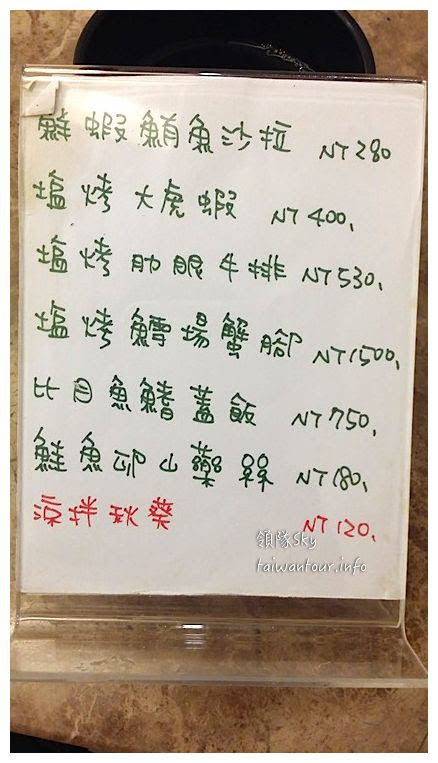 鮮蝦鮪魚沙拉 NT280
塩烤大虎蝦 NT400,
塩烤肋眼牛排 NT530,
塩烤鱈場蟹腳 NT1500,
比目魚鰭蓋飯 NT750,
鮭魚卵山藥絲 NT180,
涼拌秋葵 NT120,
領隊Sky
taiwantour.info